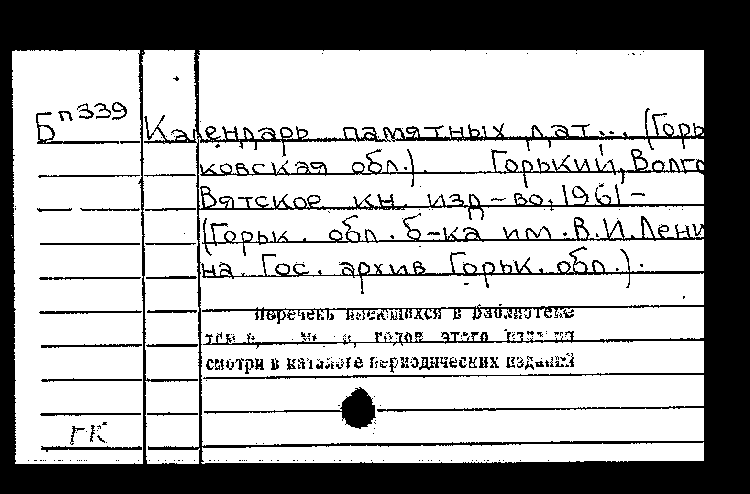 Бп339 Календарь памятных дат... (Горь
ковская обл.). Горький, Волго
Вятское кн. изд-во, 1961-
(Горьк. обл. б-ка им. В.И. Лени
на. Гос. архив Горьк. обл.).
Перечень имеющихся в библиотеке
годов этого издания
смотри в каталоге периодических изданий
ГК